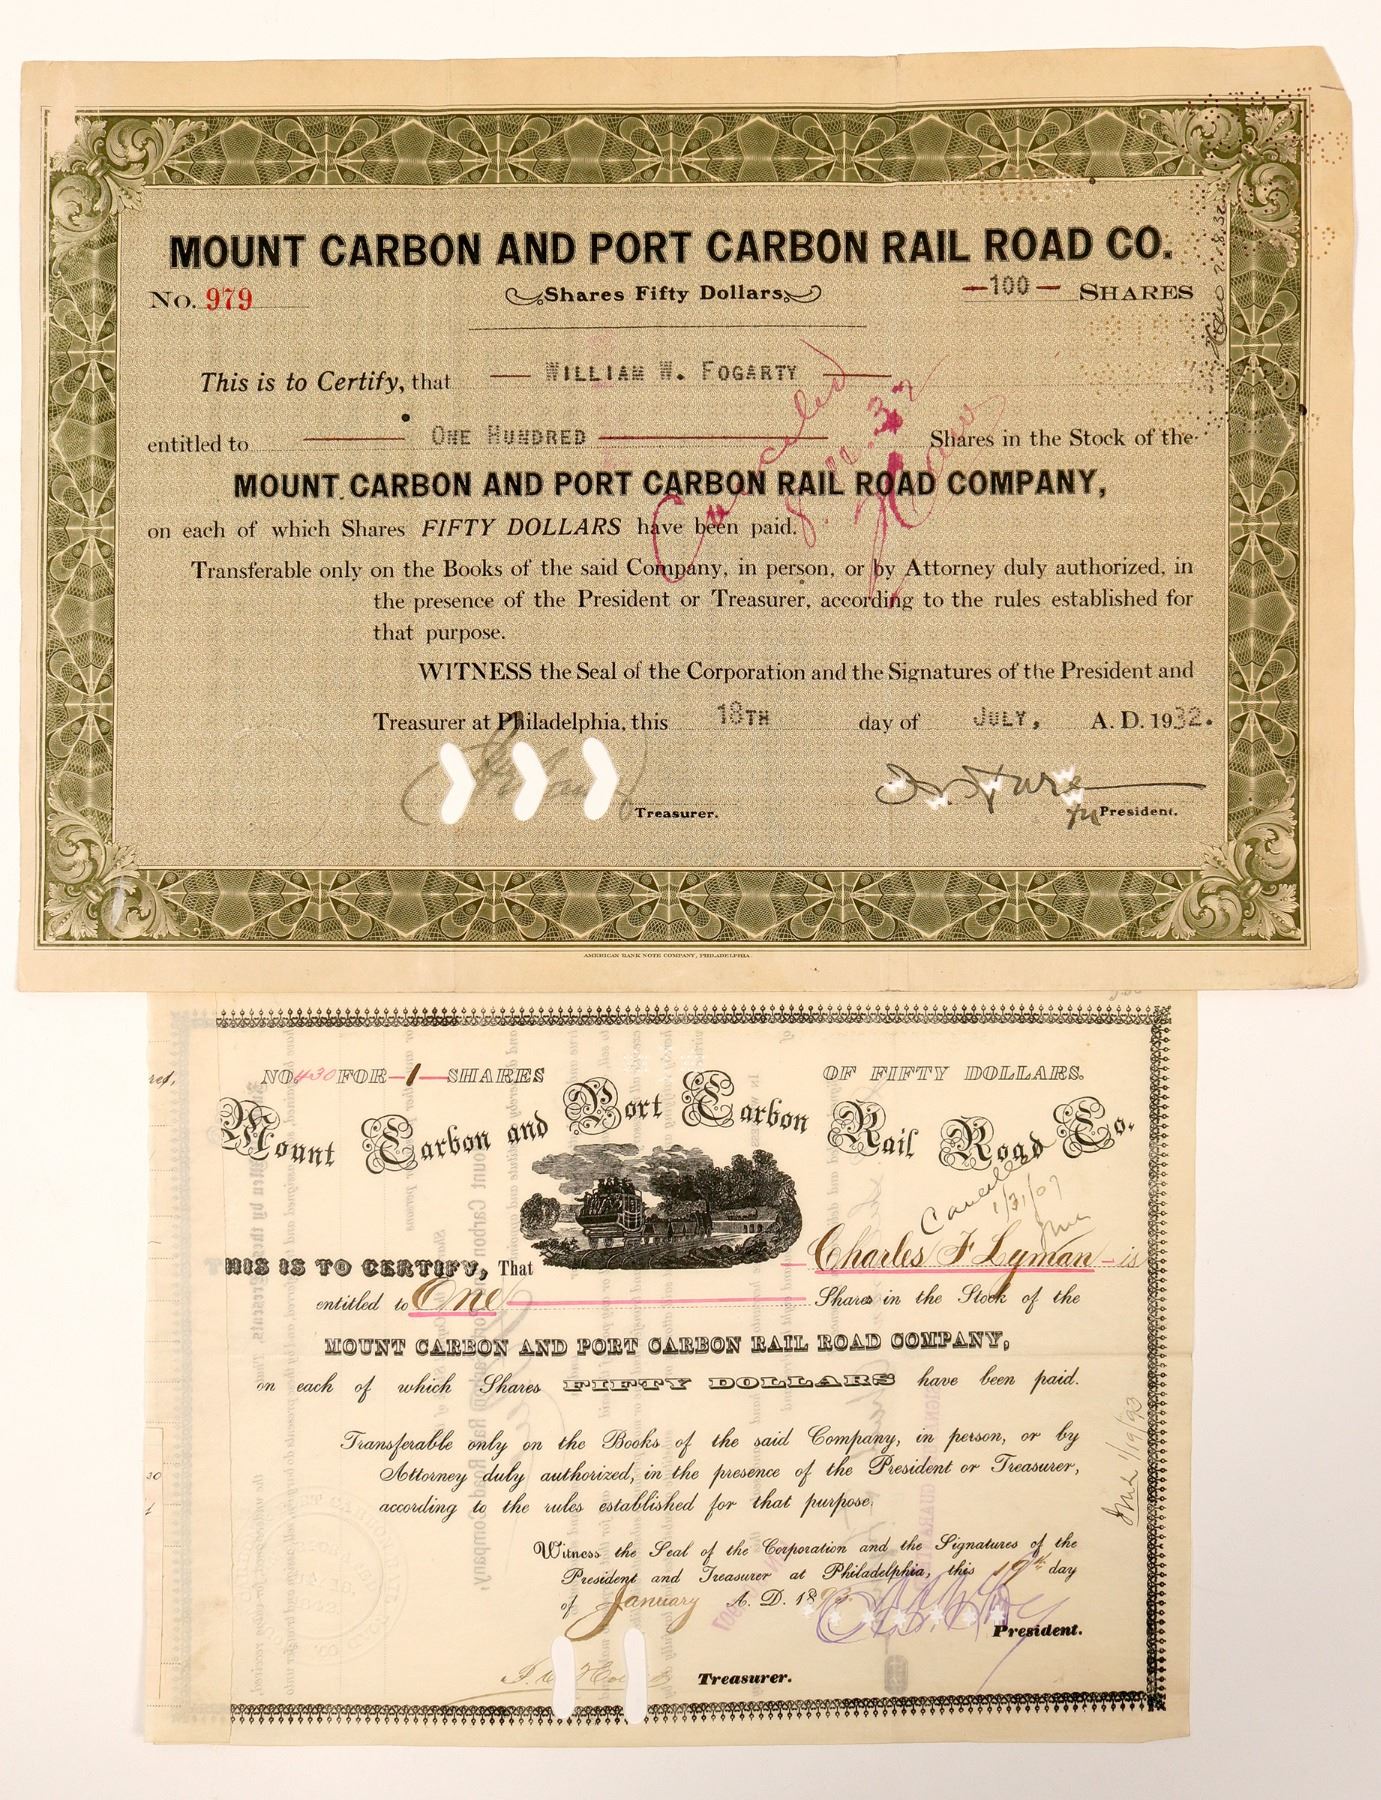 MOUNT CARBON AND PORT CARBON RAIL ROAD CO.
No. 979 Shares Fifty Dollars —100— SHARES
This is to Certify, that — WILLIAM W. FOGARTY —
entitled to ONE HUNDRED Shares in the Stock of the
MOUNT CARBON AND PORT CARBON RAIL ROAD COMPANY,
on each of which Shares FIFTY DOLLARS have been paid.
Cancelled
Transferable only on the Books of the said Company, in person, or by Attorney duly authorized, in
the presence of the President or Treasurer, according to the rules established for
that purpose.
WITNESS the Seal of the Corporation and the Signatures of the President and
Treasurer at Philadelphia, this 18TH day of JULY, A. D. 1932.
Treasurer.
President.
AMERICAN BANK NOTE COMPANY, PHILADELPHIA.
NO 430 FOR —1— SHARES OF FIFTY DOLLARS.
Mount Carbon and Port Carbon Rail Road Co.
Cancelled
1/31/07
THIS IS TO CERTIFY, That — Charles F. Lyman — is
entitled to One Shares in the Stock of the
MOUNT CARBON AND PORT CARBON RAIL ROAD COMPANY,
on each of which Shares FIFTY DOLLARS have been paid.
Transferable only on the Books of the said Company, in person, or by
Attorney duly authorized, in the presence of the President or Treasurer,
according to the rules established for that purpose.
Witness the Seal of the Corporation and the Signatures of the
President and Treasurer at Philadelphia, this 19th day
of January A. D. 1893.
President.
Treasurer.
1/19/93